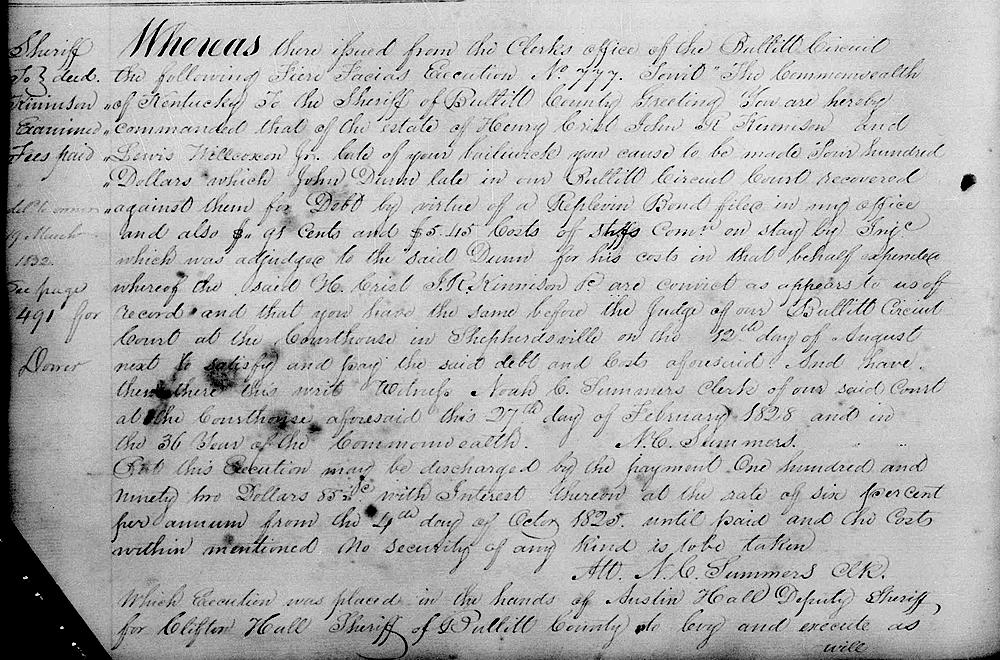 Sheriff
To } deed.
Kinnison
Examined
Fees paid
del. to owner
9 March
1832.
See page
491 for
Dower
Whereas there issued from the Clerks office of the Bullitt Circuit
the following Fieri Facias Execution No 777. Towit "The Commonwealth
"of Kentucky To the Sheriff of Bullitt County Greeting You are hereby
"commanded that of the estate of Henry Crist John R Kennison and
"Lewis Willcoxon Jr. late of your bailiwick you cause to be made Four hundred
"Dollars which John Dunn late in our Bullitt Circuit Court recovered
"against them for Debt by virtue of a Replevin Bond filed in my office
and also $.. 91 Cents and $5.45 Costs of Comr. on stay by
which was adjudged to the said Dunn for his costs in that behalf expended
whereof the said H. Crist J.R. Kinnison &c are convict as appears to us of
record and that you have the same before the Judge of our Bullitt Circuit
Court at the Courthouse in Shepherdsville on the 12th day of August
next to satisfy and pay the said debt and Costs aforesaid. And have
then there this writ Witness Noah C. Summers Clerk of our said Court
at the Courthouse aforesaid this 27th day of February 1828 and in
the 36 Year of the Commonwealth. N.C. Summers.
But this Execution may be discharged by the payment One hundred and
ninety two Dollars with Interest thereon at the rate of six percent
per annum from the 4th day of Octor 1825. until paid and the Costs
within mentioned No security of any kind is tobe taken
Att. N.C. Summers Clk.
Which Execution was placed in the hands of Austin Hall Deputy Sheriff
for Clifton Hall Sheriff of Bullitt County to levy and execute as
will